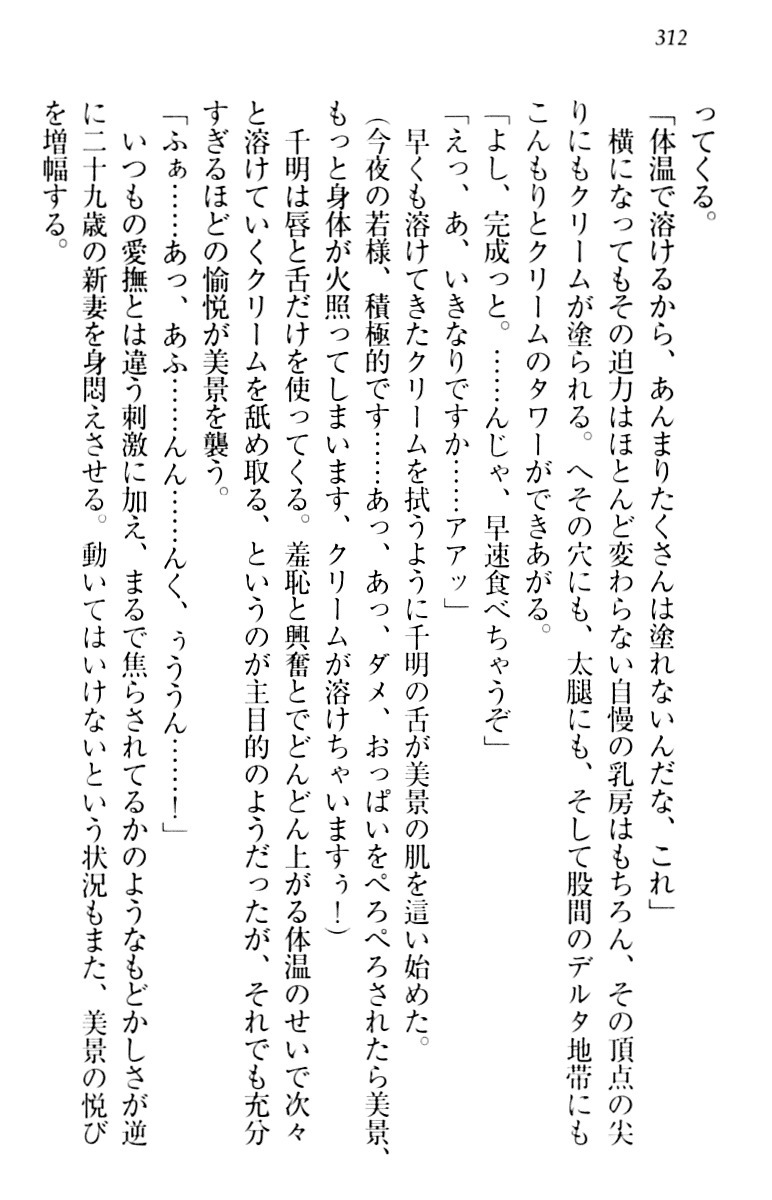 312
ってくる。
「体温で溶けるから、あんまりたくさんは塗れないんだな、これ」
横になってもその迫力はほとんど変わらない自慢の乳房はもちろん、その頂点の尖
りにもクリームが塗られる。へその穴にも、太腿にも、そして股間のデルタ地帯にも
こんもりとクリームのタワーができあがる。
「よし、完成っと。……んじゃ、早速食べちゃうぞ」
「えっ、あ、いきなりですか……アアッ」
早くも溶けてきたクリームを拭うように千明の舌が美景の肌を這い始めた。
（今夜の若様、積極的です……あっ、あっ、ダメ、おっぱいをぺろぺろされたら美景、
もっと身体が火照ってしまいます、クリームが溶けちゃいますぅ！）
千明は唇と舌だけを使ってくる。羞恥と興奮とでどんどん上がる体温のせいで次々
と溶けていくクリームを舐め取る、というのが主目的のようだったが、それでも充分
すぎるほどの愉悦が美景を襲う。
「ふぁ……あっ、あふ……んん……んく、ぅううん……！」
いつもの愛撫とは違う刺激に加え、まるで焦らされてるかのようなもどかしさが逆
に二十九歳の新妻を身悶えさせる。動いてはいけないという状況もまた、美景の悦び
を増幅する。